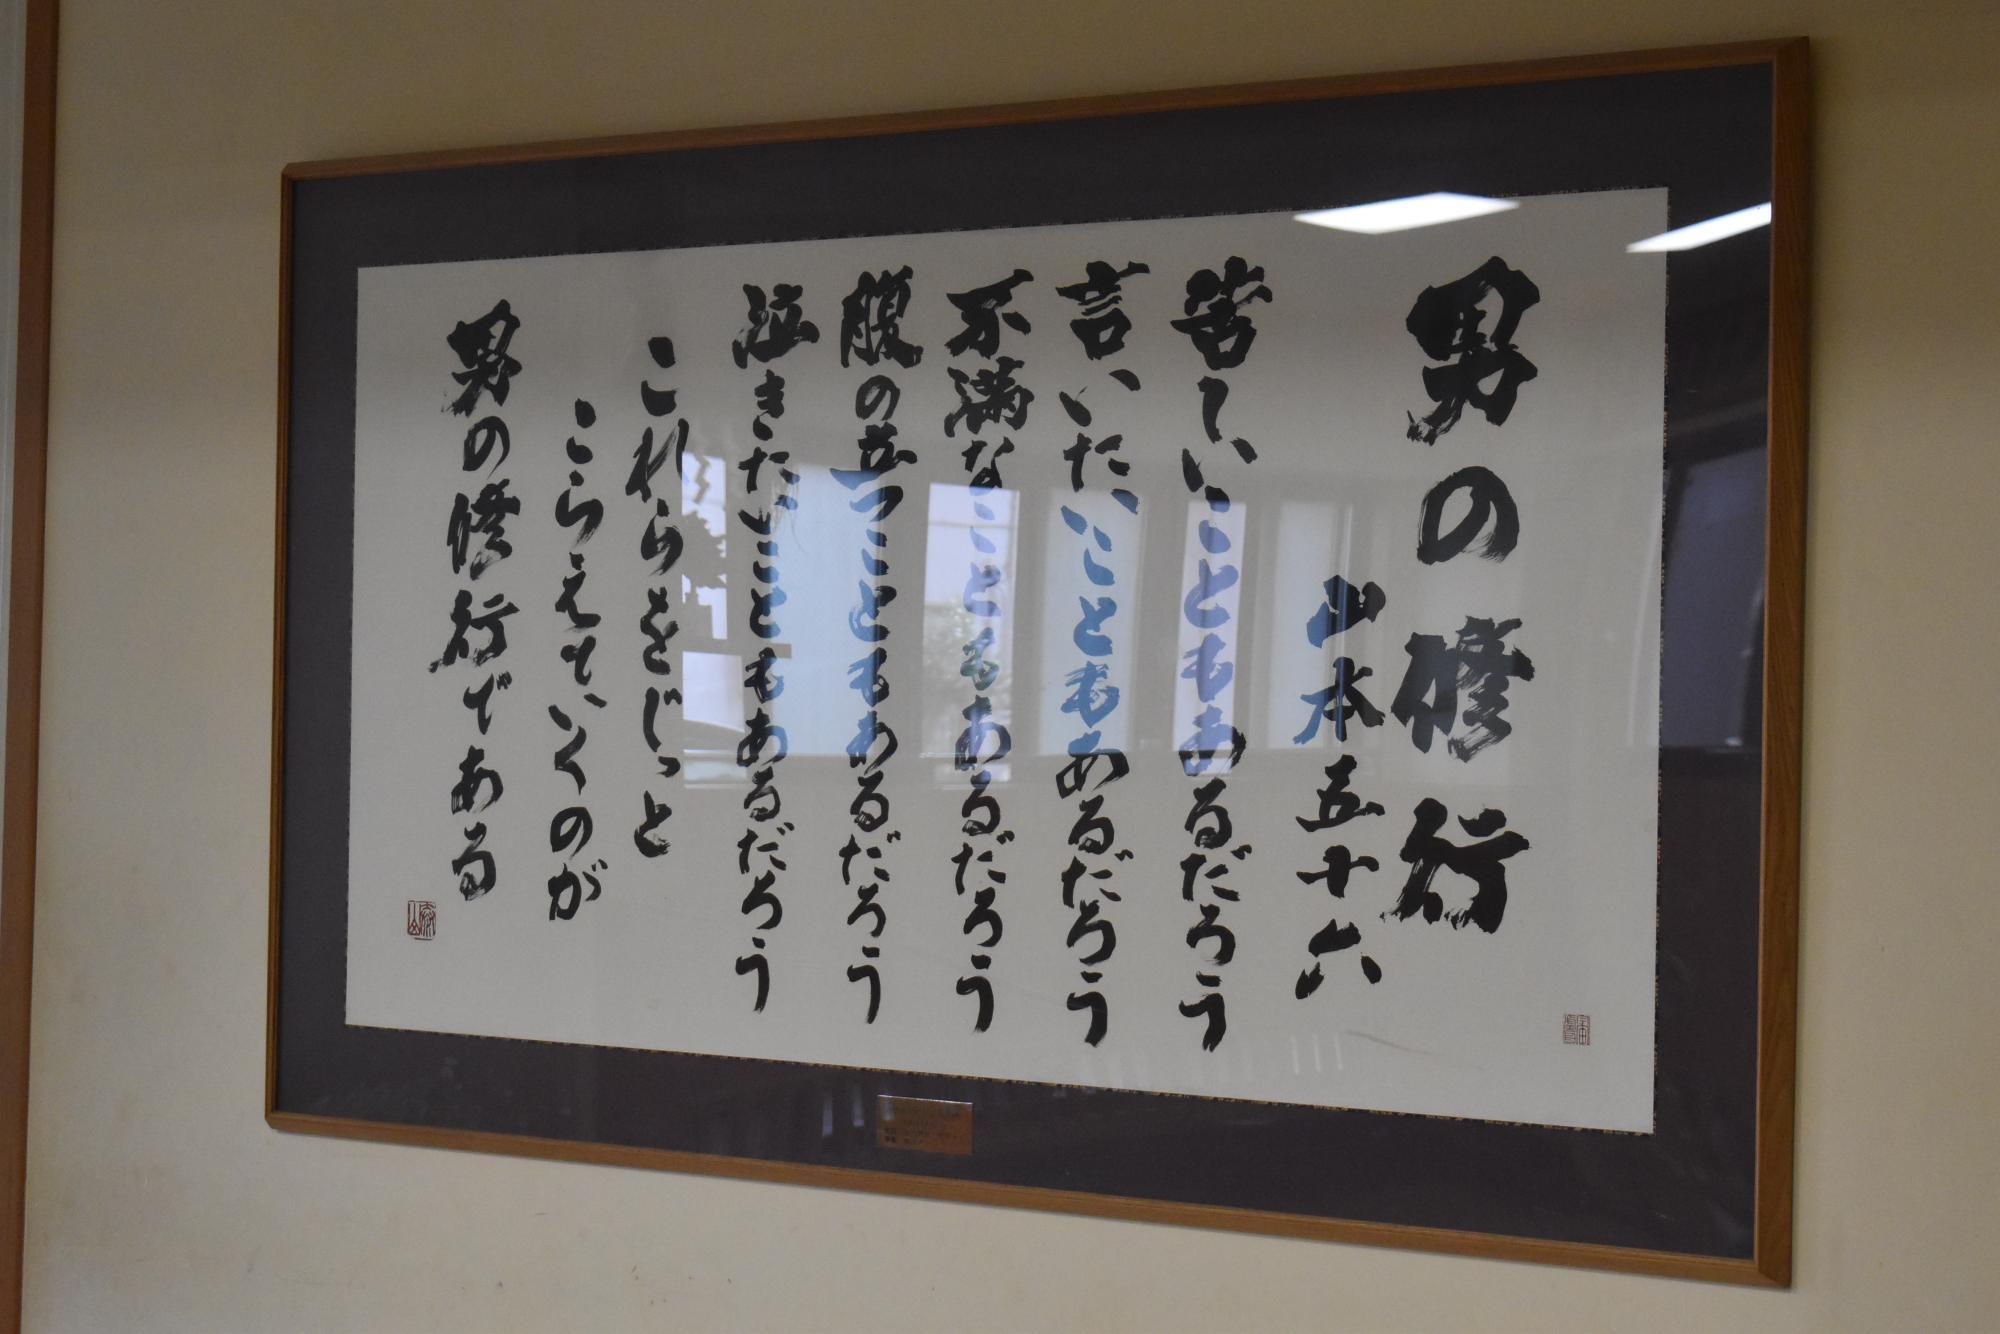 男の修行
山本五十六
苦しいこともあるだろう
言いたいこともあるだろう
不満なこともあるだろう
腹の立つこともあるだろう
泣きたいこともあるだろう
これらをじっと
こらえていくのが
男の修行である